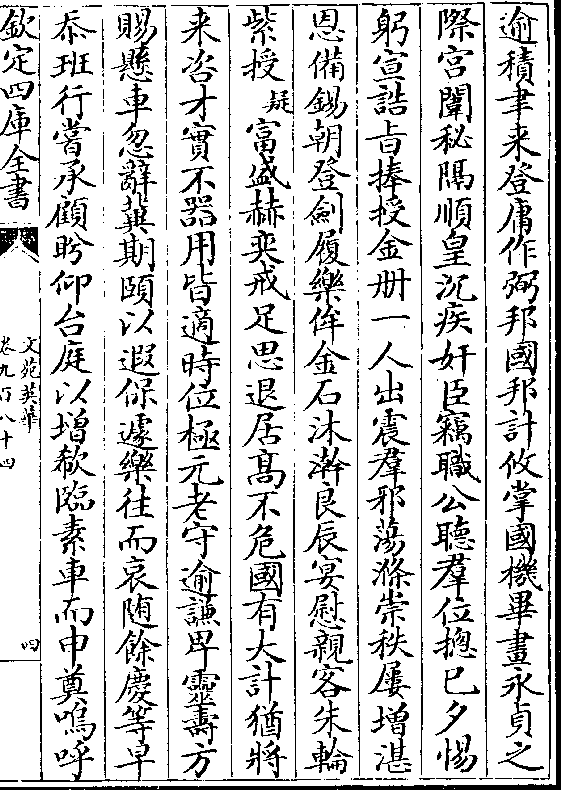 逾積聿来登庸作弼邦國邦計攸掌國機畢畫永貞之
際宫闈秘隔順皇沉疾奸臣竊職公聽羣位摠已夕惕
躬宣誥㫖捧授金册一人出震羣邪蕩滌崇秩屢增湛
恩備錫朝登劍履樂侔金石沐澣良辰宴慰親客朱輪
紫授疑富盛赫奕戒足思退居髙不危國有大計猶將
来咨才實不器用皆適時位極元老守逾謙卑靈壽方
賜懸車忽辭冀期頤以遐保遽樂往而哀随餘慶等早
忝班行嘗承顧眄仰台庭以增欷臨素車而申奠嗚呼
欽定四庫全書
文苑英華
卷九百八十四
四